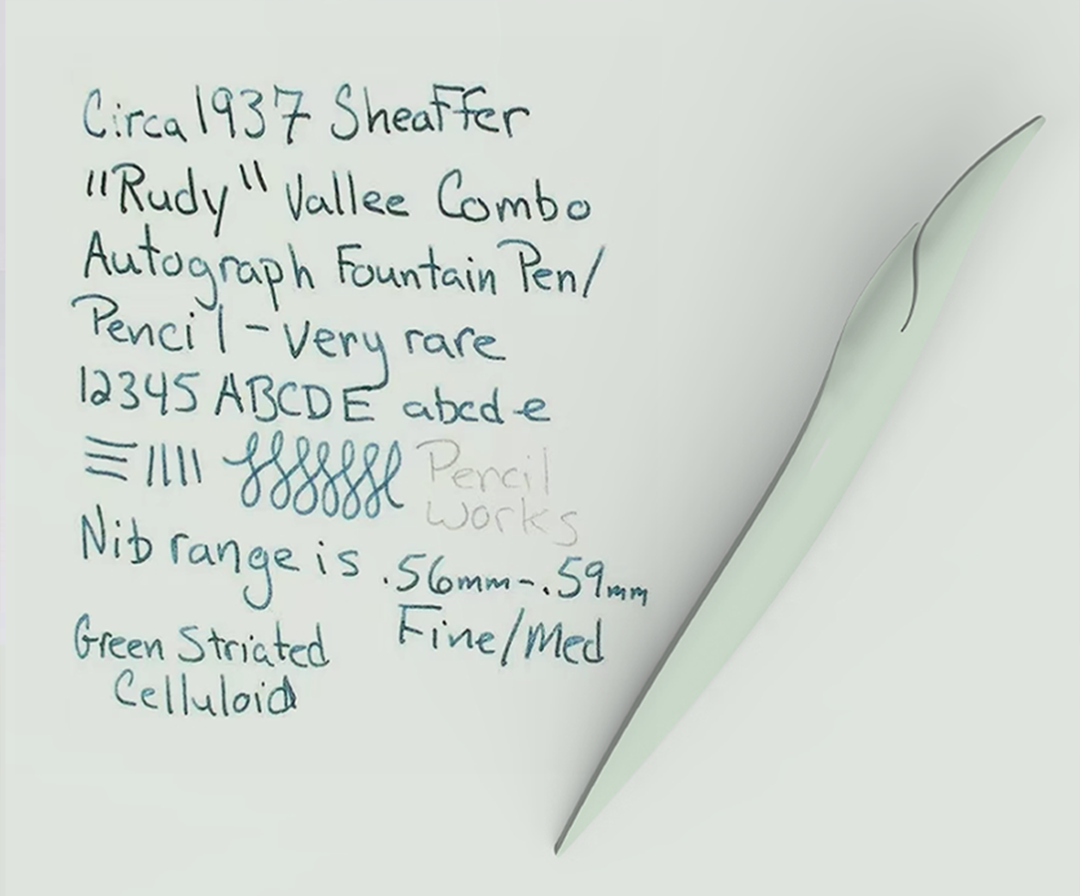 Circa 1937 Sheaffer
"Rudy" Vallee Combo
Autograph Fountain Pen/
Pencil - very rare
12345 ABCDE abcde
Pencil
works
Nib range is .56mm-.59mm
Fine/Med
Green Striated
Celluloid